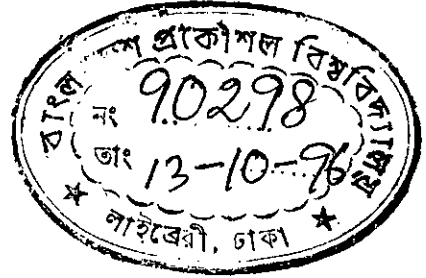 বাংলাদেশ প্রকৌশল বিশ্ববিদ্যালয়
নং 90298
তাং 13-10-96
লাইব্রেরী, ঢাকা